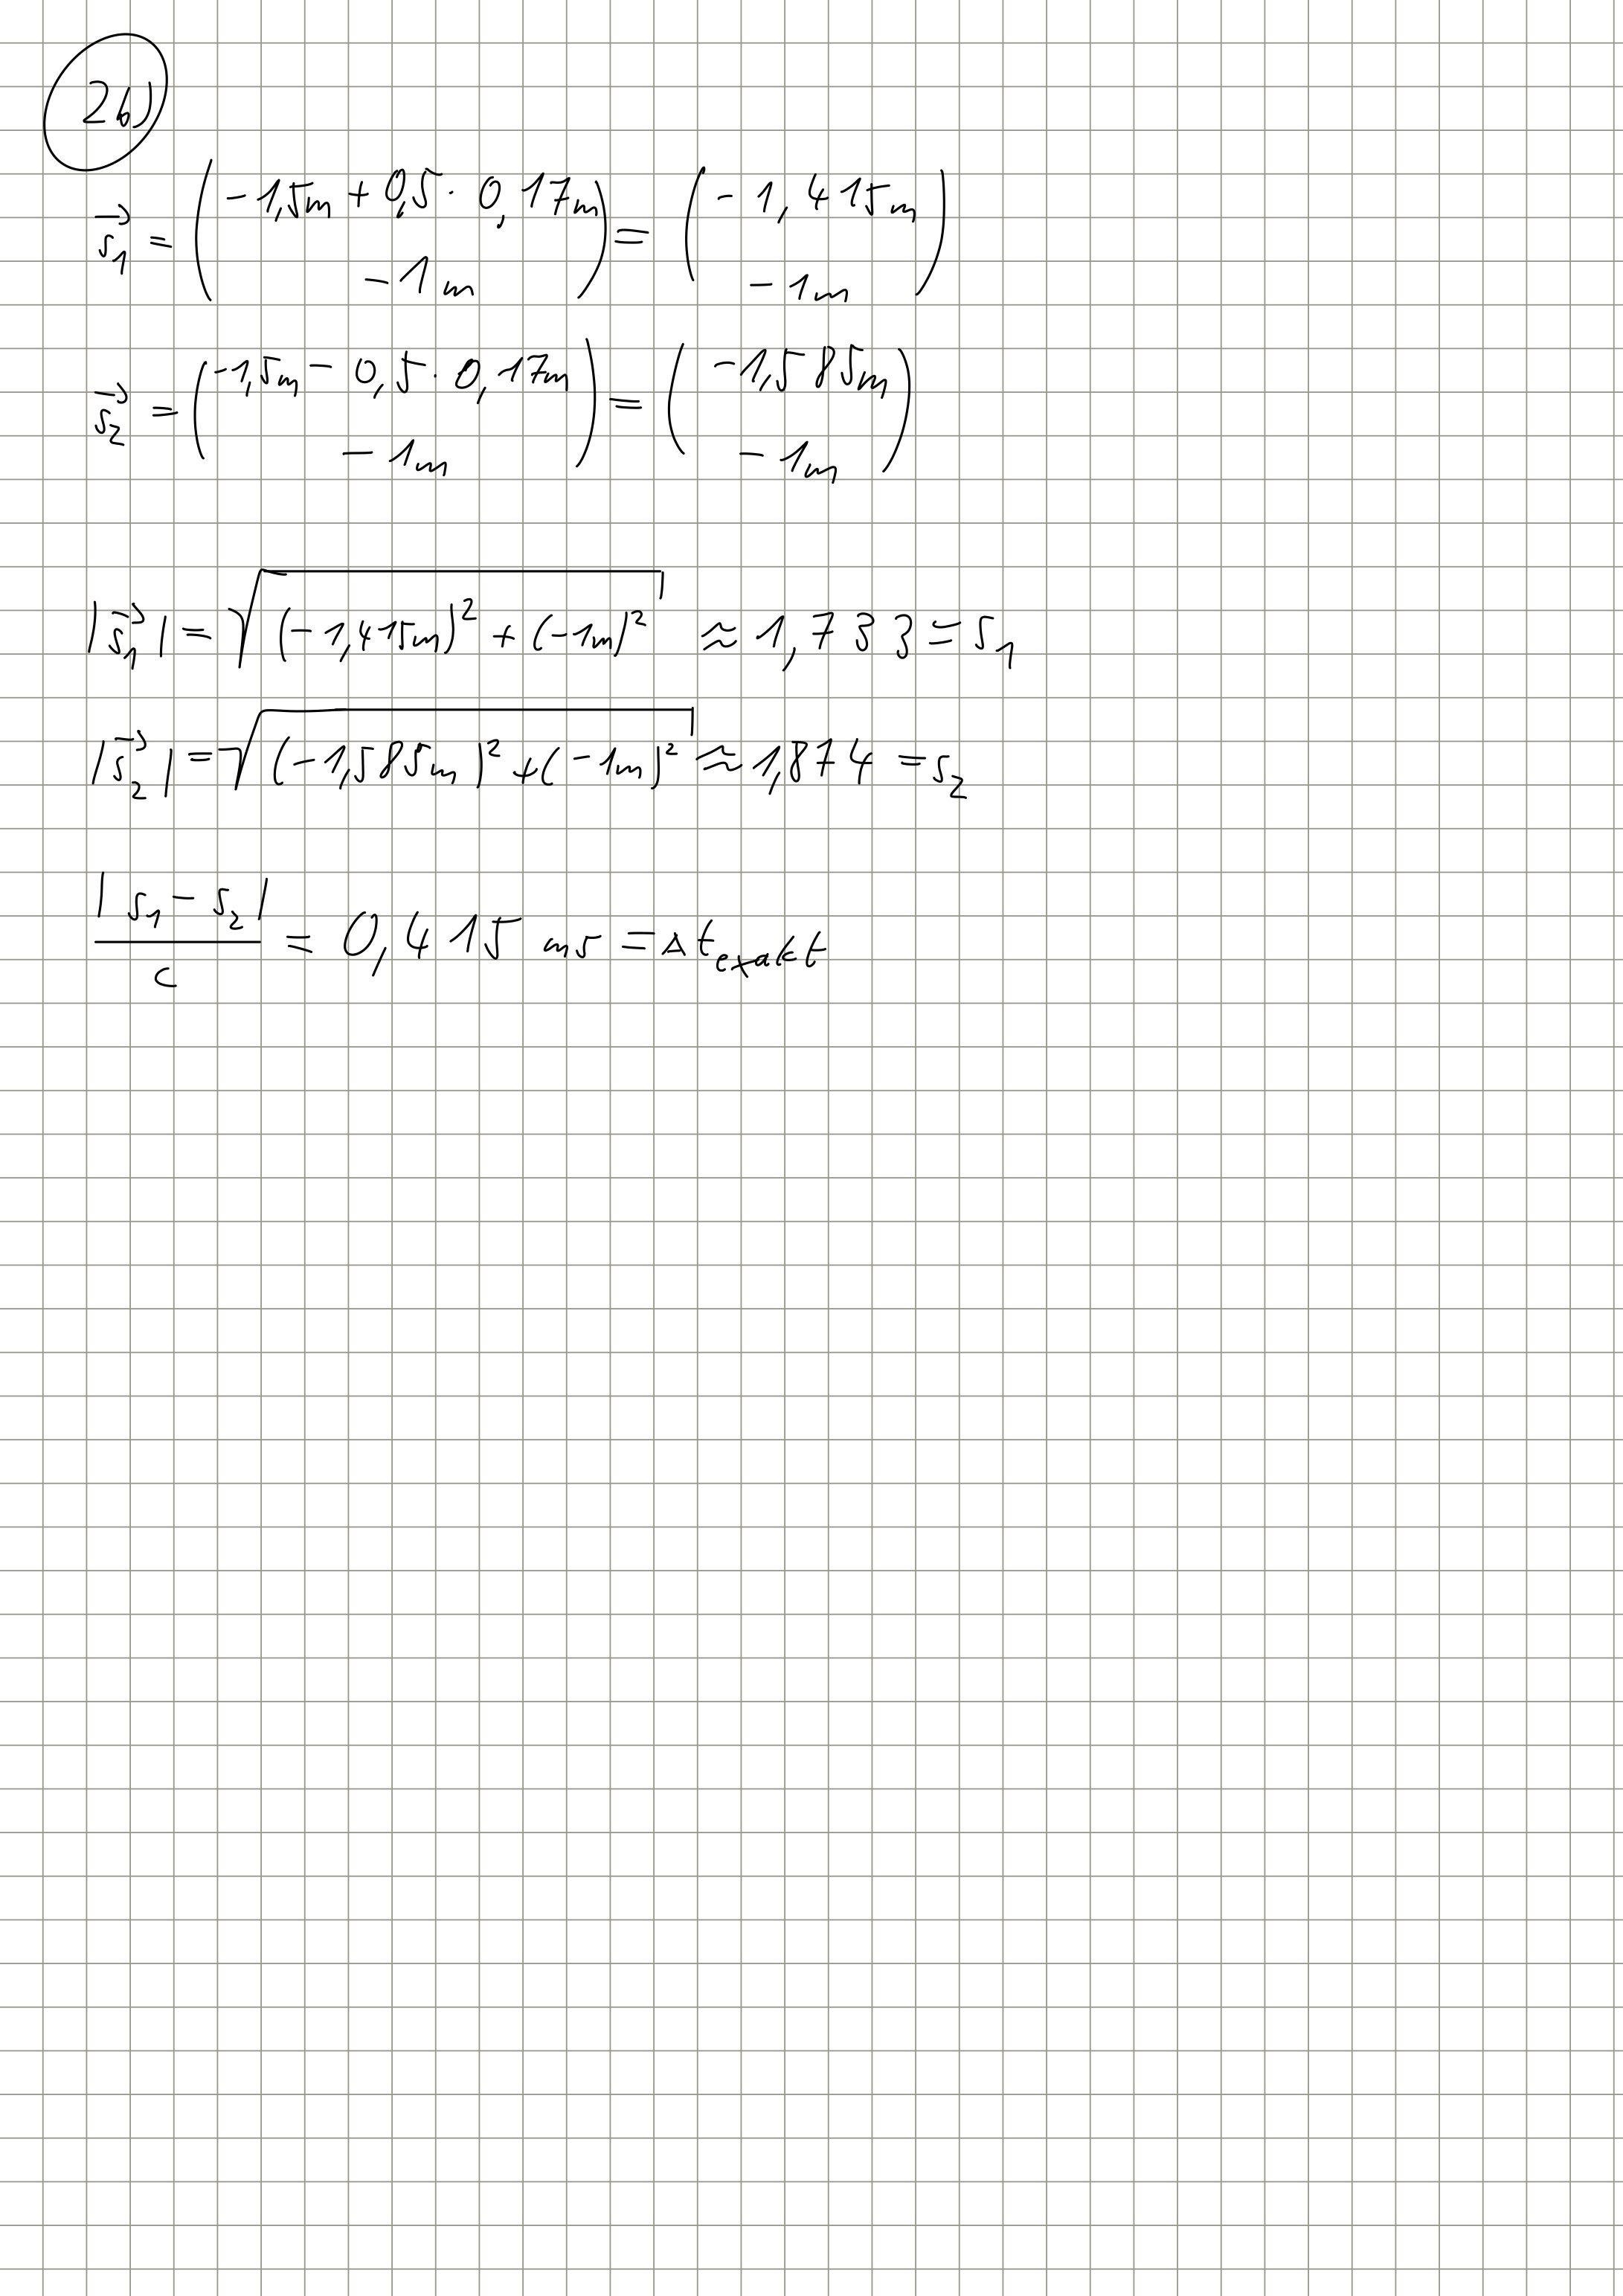 2b)
s⃗₁ = ( -1,5m + 0,5 · 0,17m ; -1m ) = ( -1,415m ; -1m )
s⃗₂ = ( -1,5m - 0,5 · 0,17m ; -1m ) = ( -1,585m ; -1m )
|s⃗₁| = √((-1,415m)² + (-1m)²) ≈ 1,733 = s₁
|s⃗₂| = √((-1,585m)² + (-1m)²) ≈ 1,874 = s₂
|s₁ - s₂| / c = 0,415 ms = Δt_exakt